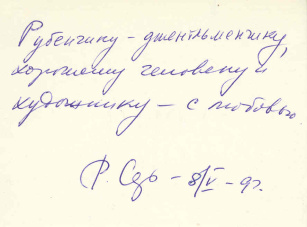 Рубенчику – джентльменчику,
хорошему человеку и
художнику – с любовью
Р. Сефь – 8/V – 9г.